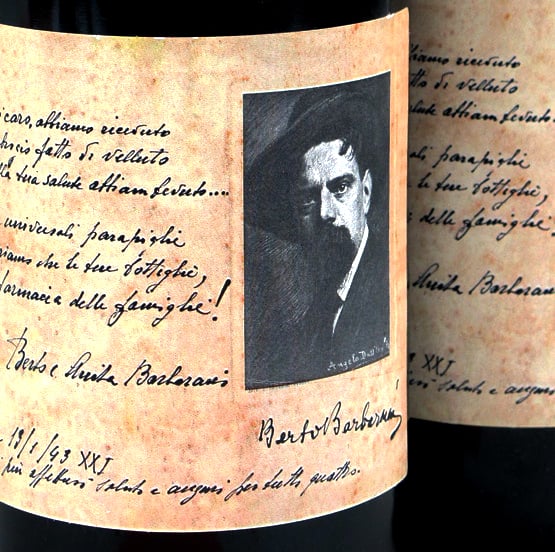 caro, abbiamo ricevuto
fatto di velluto
la tua salute abbiam bevuto....
universali parapiglie
che le tue bottiglie,
farmacia delle famiglie!
Berto e Anita Barbarani
19/1/43 XXI
più affettuosi saluti e auguri per tutti quattro.
Angelo Dall'
Berto Barbarani
ricevuto
di velluto
salute abbiam bevuto..
parapiglie
le tue bottiglie,
delle famiglie!
Anita Barbarani
XXI
saluti e auguri